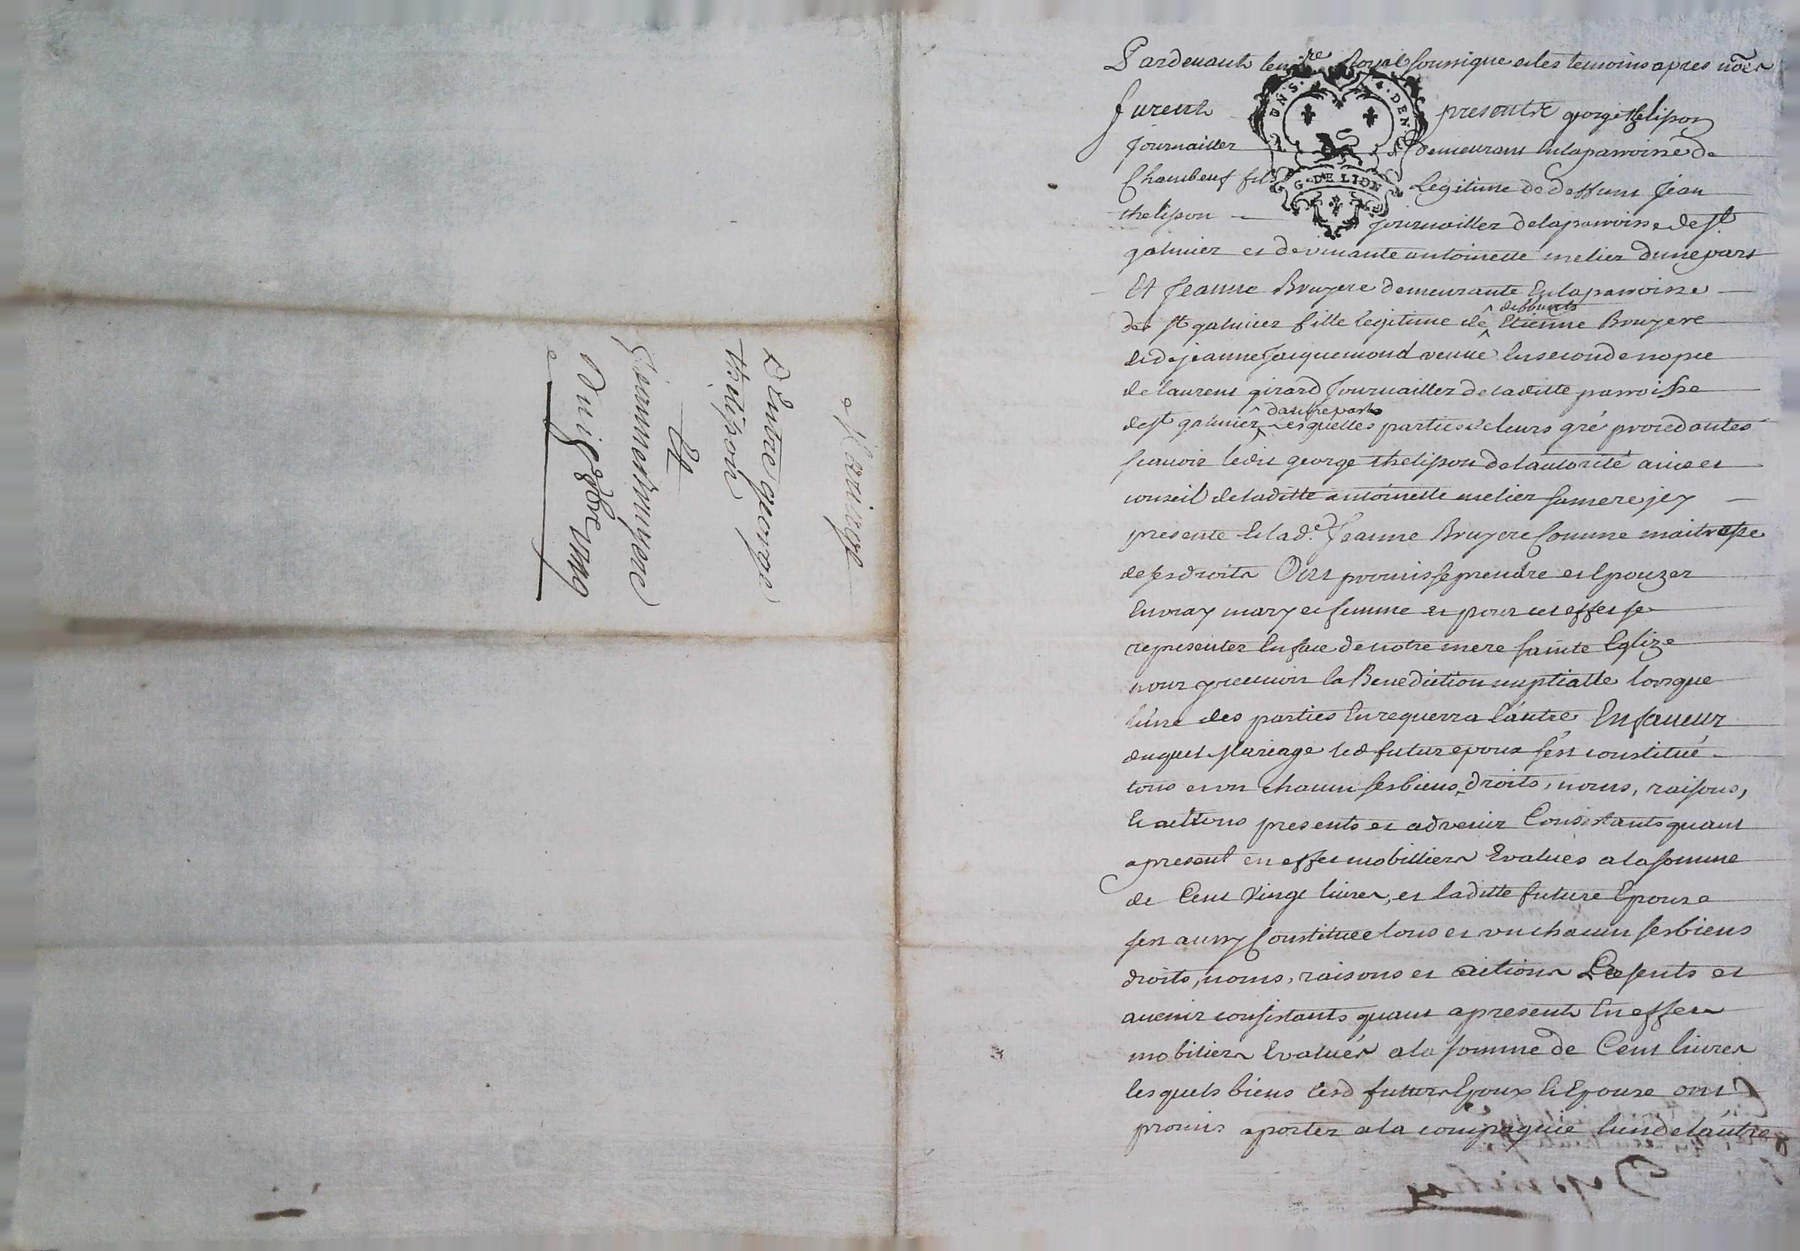 Mariage
D'Entre george
thelisson
Et
Jeanne bruyere
Du 8bre
Pardevant le nre Royal soussigne et les temoins apres nôes
furent presents george thelisson
Journailler demeurant en la parroisse de
Chambeuf fils legitime de deffunt Jean
thelison Journailler de la parroisse de st
galmier et de vivante antoinette melier dune part
Et Jeanne Bruyere demeurante En la parroisse
de st galmier fille legitime de deffunts Etienne Bruyere
et de jeanne Jacquemond veuve En seconde nopce
de laurent girard Journailler de laditte parroisse
de st galmier dautre part Lesquelles parties de leurs gré procedantes
scavoir ledit george thelisson de lautorité avis et
conseil de laditte antoinette melier sa mere icy
presente Et lad.e Jeanne Bruyere Comme maitresse
de ses droits Ont promis se prendre et Epouzer
En vray mary et femme et pour cet effet se
representer En face de notre mere sainte Eglize
pour y recevoir la Benediction nuptialle lorsque
lune des parties En requerra l'autre En faveur
duquel Mariage led futur epoux sest constitué
tous et un chacun ses biens, droits, noms, raisons,
Et actions presents et advenir Consistants quant
apresent en effet mobilliers Evalués a la somme
de Cent vingt livres, et laditte future Epouse
sest aussy Constituée tous et un chacun ses biens
droits, noms, raisons et actions Presents et
avenir consistants quant apresent En effets
mobiliers Evalués a la somme de Cent livres
lesquels biens lesd futurs Epoux Et Epouse ont
promis aporter a la compagnie lun de lautre
DNS
DEN
G. DE LION